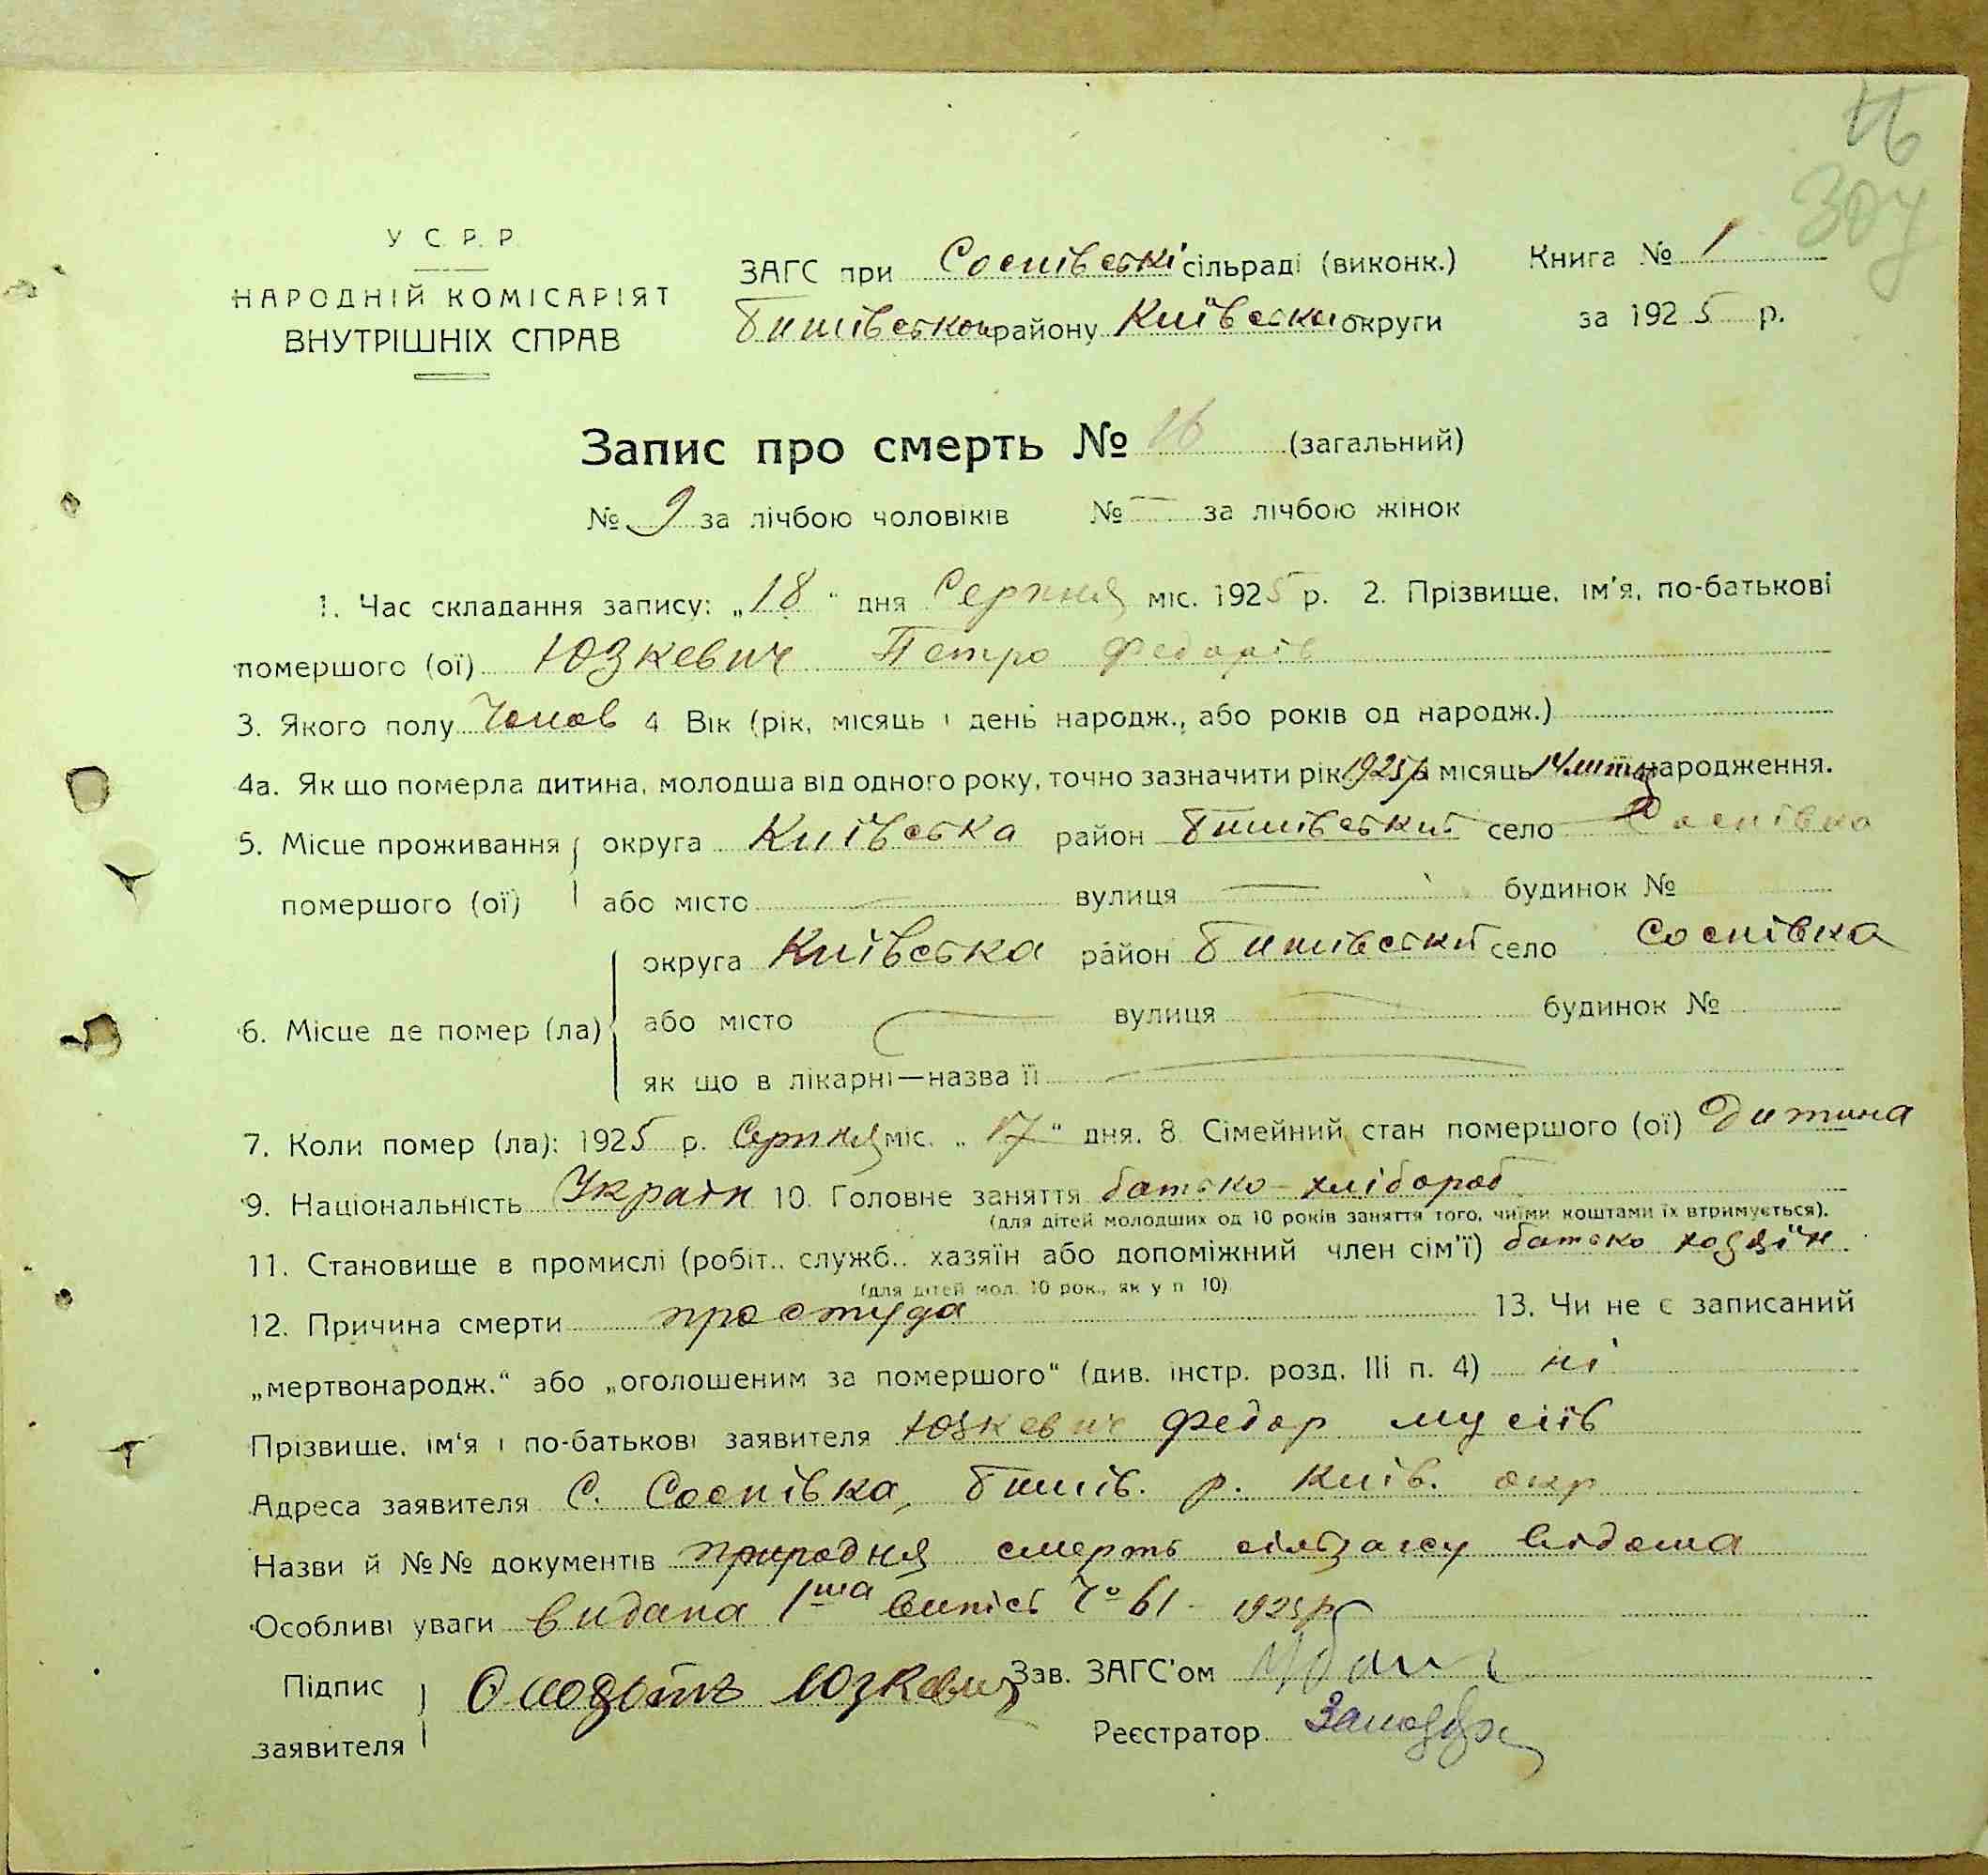 16
304
У С. Р. Р.
НАРОДНІЙ КОМІСАРІЯТ
ВНУТРІШНІХ СПРАВ
ЗАГС при Соснівські сільраді (виконк.)
Бишівськои району Київськои округи
Книга № 1
за 1925 р.
Запис про смерть № 16 (загальний)
№ 9 за лічбою чоловіків № — за лічбою жінок
1. Час складання запису: „18“ дня Серпня міс. 1925 р. 2. Прізвище, ім'я, по-батькові
помершого (ої) Юзкевич Петро Федорів
3. Якого полу Чолов 4 Вік (рік, місяць і день народж., або років од народж.)
4а. Як що померла дитина, молодша від одного року, точно зазначити рік 1925 р місяць 14 народження.
5. Місце проживання округа Київська район Бишівський село Соснівка
помершого (ої) або місто — вулиця — будинок №
округа Київська район Бишівский село Соснівка
6. Місце де помер (ла) або місто — вулиця — будинок №
як що в лікарні—назва її —
7. Коли помер (ла): 1925 р. Серпня міс. „17“ дня. 8. Сімейний стан помершого (ої) Дитина
9. Національність Україн 10. Головне заняття батько - хлібороб
(для дітей молодших од 10 років заняття того, чиїми коштами їх втримується).
11. Становище в промислі (робіт., служб., хазяїн або допоміжний член сім'ї) батько хазяїн
(для дітей мол. 10 рок., як у п 10)
12. Причина смерти простуда 13. Чи не є записаний
„мертвонародж.“ або „оголошеним за помершого“ (див. інстр. розд. III п. 4) ні
Прізвище, ім'я і по-батькові заявителя Юзкевич Федор Мусіїв
Адреса заявителя С. Соснівка, Бишів. р. Київ. окр
Назви й №№ документів природня смерть сільзагсу відома
Особливі уваги видана 1ша випісь Ч° 61 1925 р
Підпис заявителя Юзкевич
Зав. ЗАГС'ом
Реєстратор